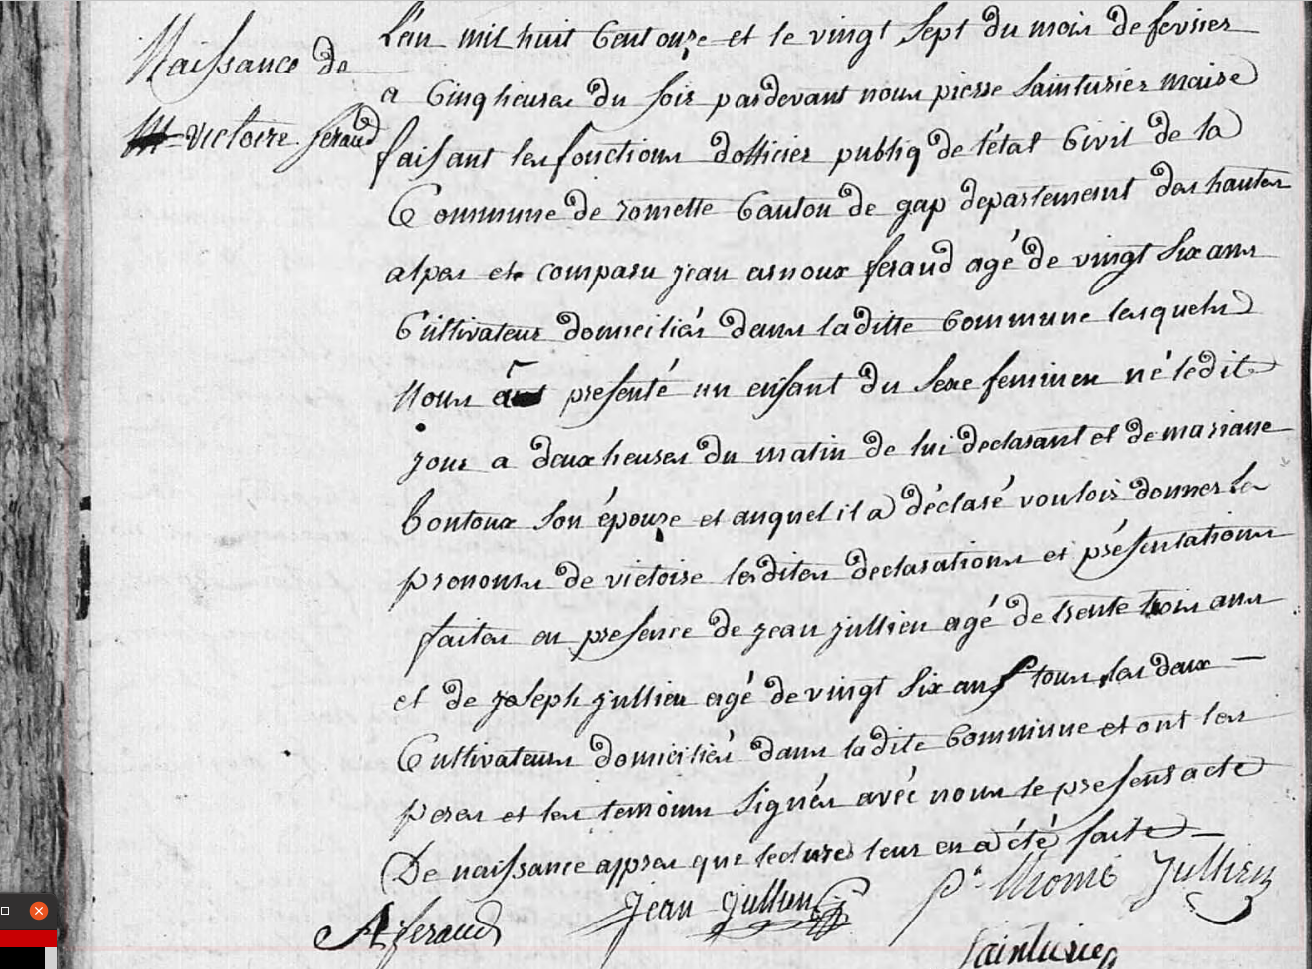 Naissance de
victoire feraud
L'an mil huit Cent onze et le vingt sept du mois de fevrier
a Cinq heures du soir pardevant nous pierre Sainturier maire
faisant les fonctions d'officier publiq de l'état Civil de la
Commune de romette Canton de gap departement des hautes
alpes et comparu jean arnoux feraud agé de vingt six ans
Cultivateur domiciliés dans laditte Commune lesquels
Nous a presenté un enfant du sexe feminen né ledit
jour a deux heures du matin de lui declarant et de mariane
boutoux son épouze et auquel il a déclaré vouloir donner le
prenoms de victoire lesdites declarations et présentations
faites en presence de jean jullien agé de trente trois ans
et de joseph jullien agé de vingt six ans tous les deux —
Cultivateurs domiciliés dans ladite Commune et ont les
peres et les temoins signés avec nous le present acte
De naissance appres que lectures leur en a été faite —
A feraud
Jean Jullien
Jullien
Sainturier